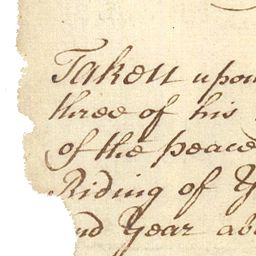 Taken upon
three of his
of the peace
Riding of Y
and Year abo